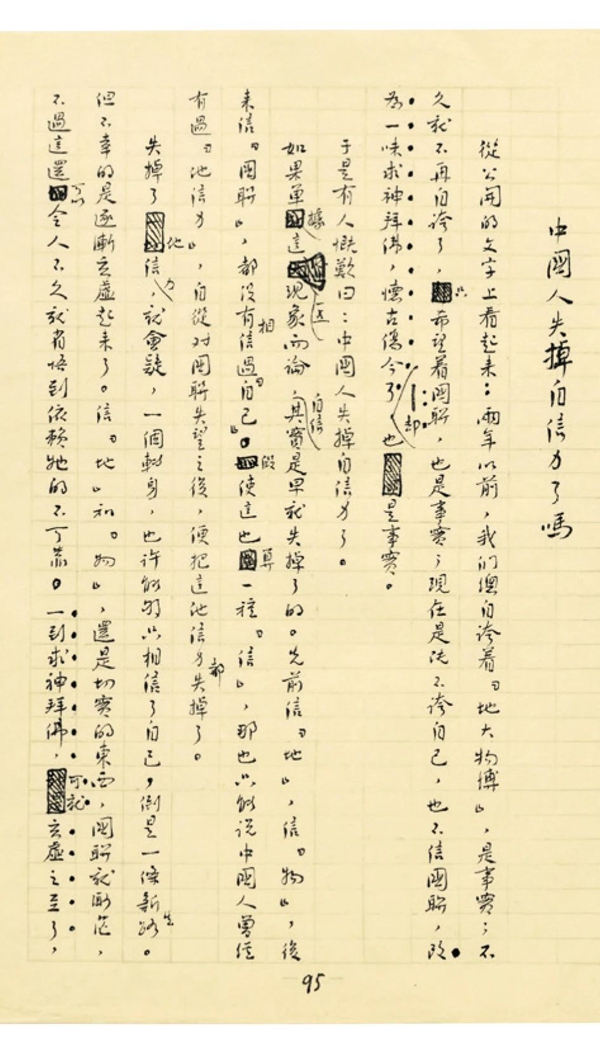 中國人失掉自信力了嗎
從公開的文字上看起来：兩年以前，我們總自誇着「地大物博」，是事實；不
久就不再自誇了，只希望着國聯，也是事實；現在是既不誇自己，也不信國聯，改
為一味求神拜佛，懷古傷今了，却也是事實。
于是有人慨歎曰：中國人失掉自信力了。
如果單據這現象而論，自信其實是早就失掉了的。先前信「地」，信「物」，後
来信「國聯」，都没有相信過「自己」。假使這也算一種「信」，那也只能說中國人曾經
有過「他信力」，自從对國聯失望之後，便把這他信力都失掉了。
失掉了他信力，就會疑，一個轉身，也許能夠只相信了自己，倒是一條新生路。
但不幸的是逐漸玄虛起来了。信「地」和「物」，還是切實的東西，國聯就渺茫，
不過這還可以令人不久就省悟到依賴牠的不可靠。一到求神拜佛，可就玄虛之至了，
95